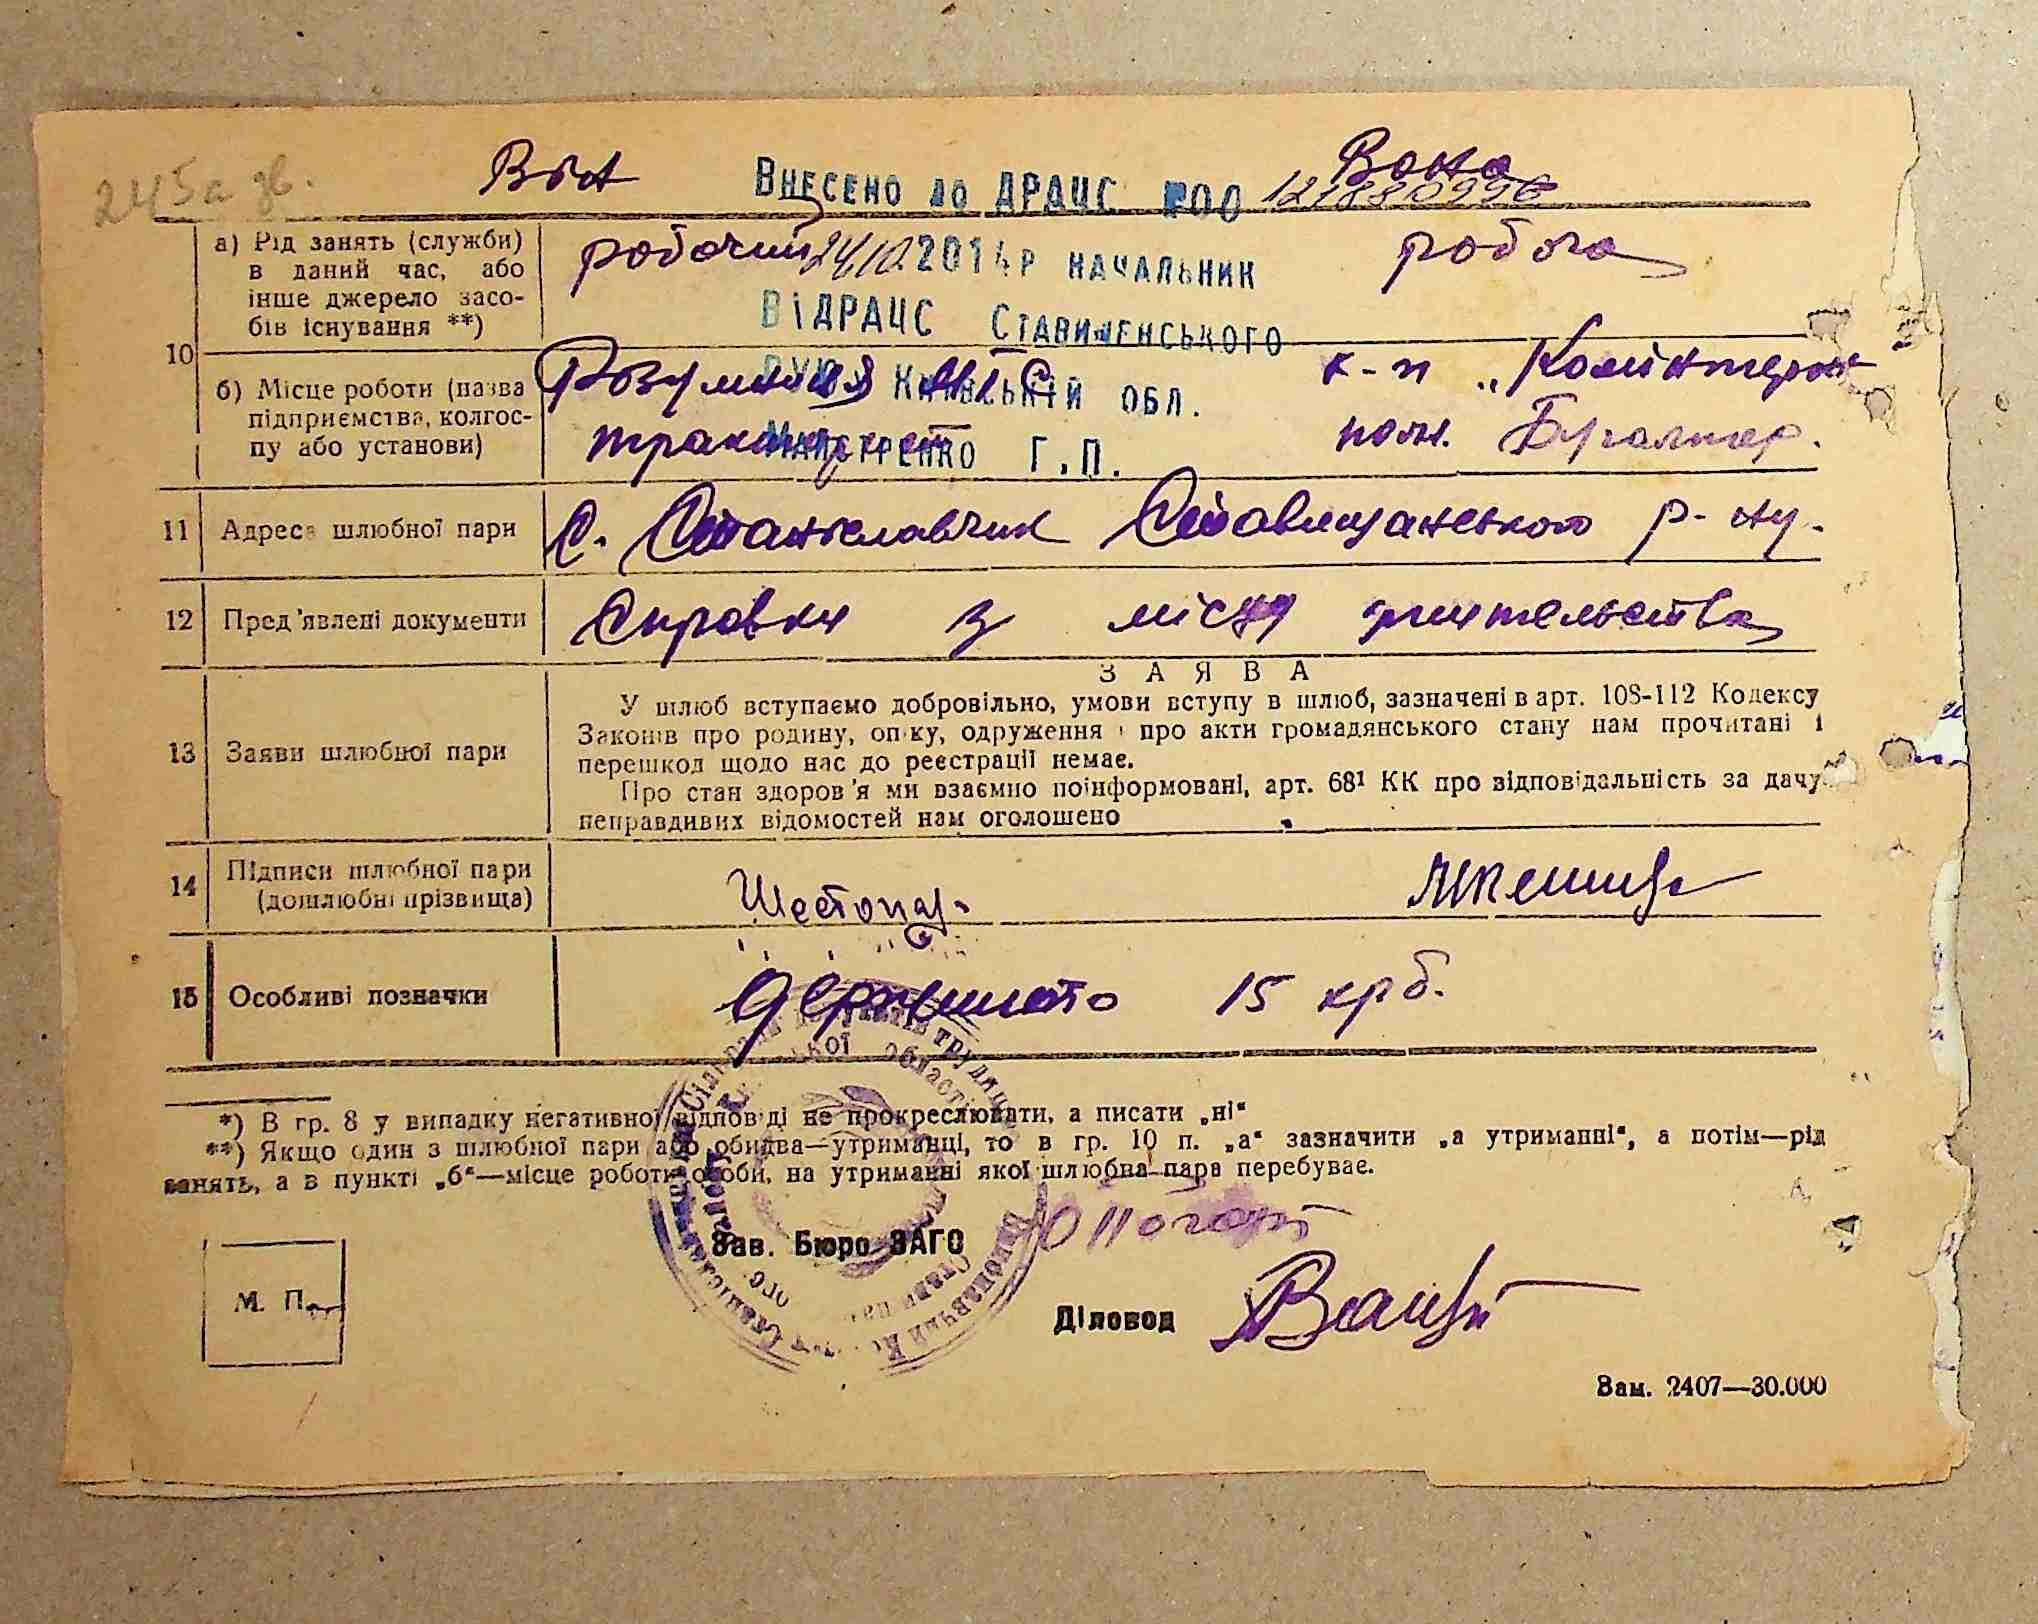 245а зв.
Він Вона
Внесено до ДРАЦС 00 121880996
а) Рід занять (служби) в даний час, або інше джерело засобів існування **)
робочий робоча
24/10 2014р начальник
ВіДРАЦС Ставищенського
Київській обл.
Г.П.
10
б) Місце роботи (назва
підприємства, колгос-
пу або установи)
МТС к-п „Комінтерн
тракторист пом. Бугалтер.
11 Адреса шлюбної пари с. Станіславчик Ставищанського р-ну.
12 Пред'явлені документи Справки з місця жительства
З А Я В А
13 Заяви шлюбної пари
У шлюб вступаємо добровільно, умови вступу в шлюб, зазначені в арт. 108-112 Кодексу
Законів про родину, опіку, одруження і про акти громадянського стану нам прочитані і
перешкод щодо нас до реєстрації немає.
Про стан здоров'я ми взаємно поінформовані, арт. 68¹ КК про відповідальність за дачу
неправдивих відомостей нам оголошено
14 Підписи шлюбної пари
(дошлюбні прізвища)
Шестопал
15 Особливі позначки Держмито 15 крб.
*) В гр. 8 у випадку негативної відповіді не прокреслювати, а писати „ні“
**) Якщо один з шлюбної пари або обидва—утриманці, то в гр. 10 п. „а“ зазначити „а утриманні“, а потім—рід
занять, а в пункті „б“—місце роботи особи, на утриманні якої шлюбна пара перебуває.
Зав. Бюро ЗАГС
М. П.
Діловод
Зам. 2407—30.000